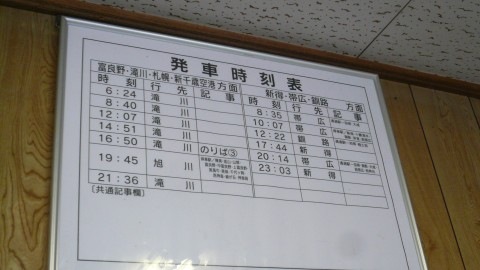 発車時刻表
富良野・滝川・札幌・新千歳空港 方面
時刻 行先 記事
6:24 滝川
8:40 滝川
12:07 滝川
14:51 滝川
16:50 滝川 のりば③
19:45 旭川
21:36 滝川
[共通記事欄]
新得・帯広・釧路 方面
時刻 行先 記事
8:35 帯広
10:07 帯広
12:22 釧路
17:44 新得
20:14 帯広
23:03 新得